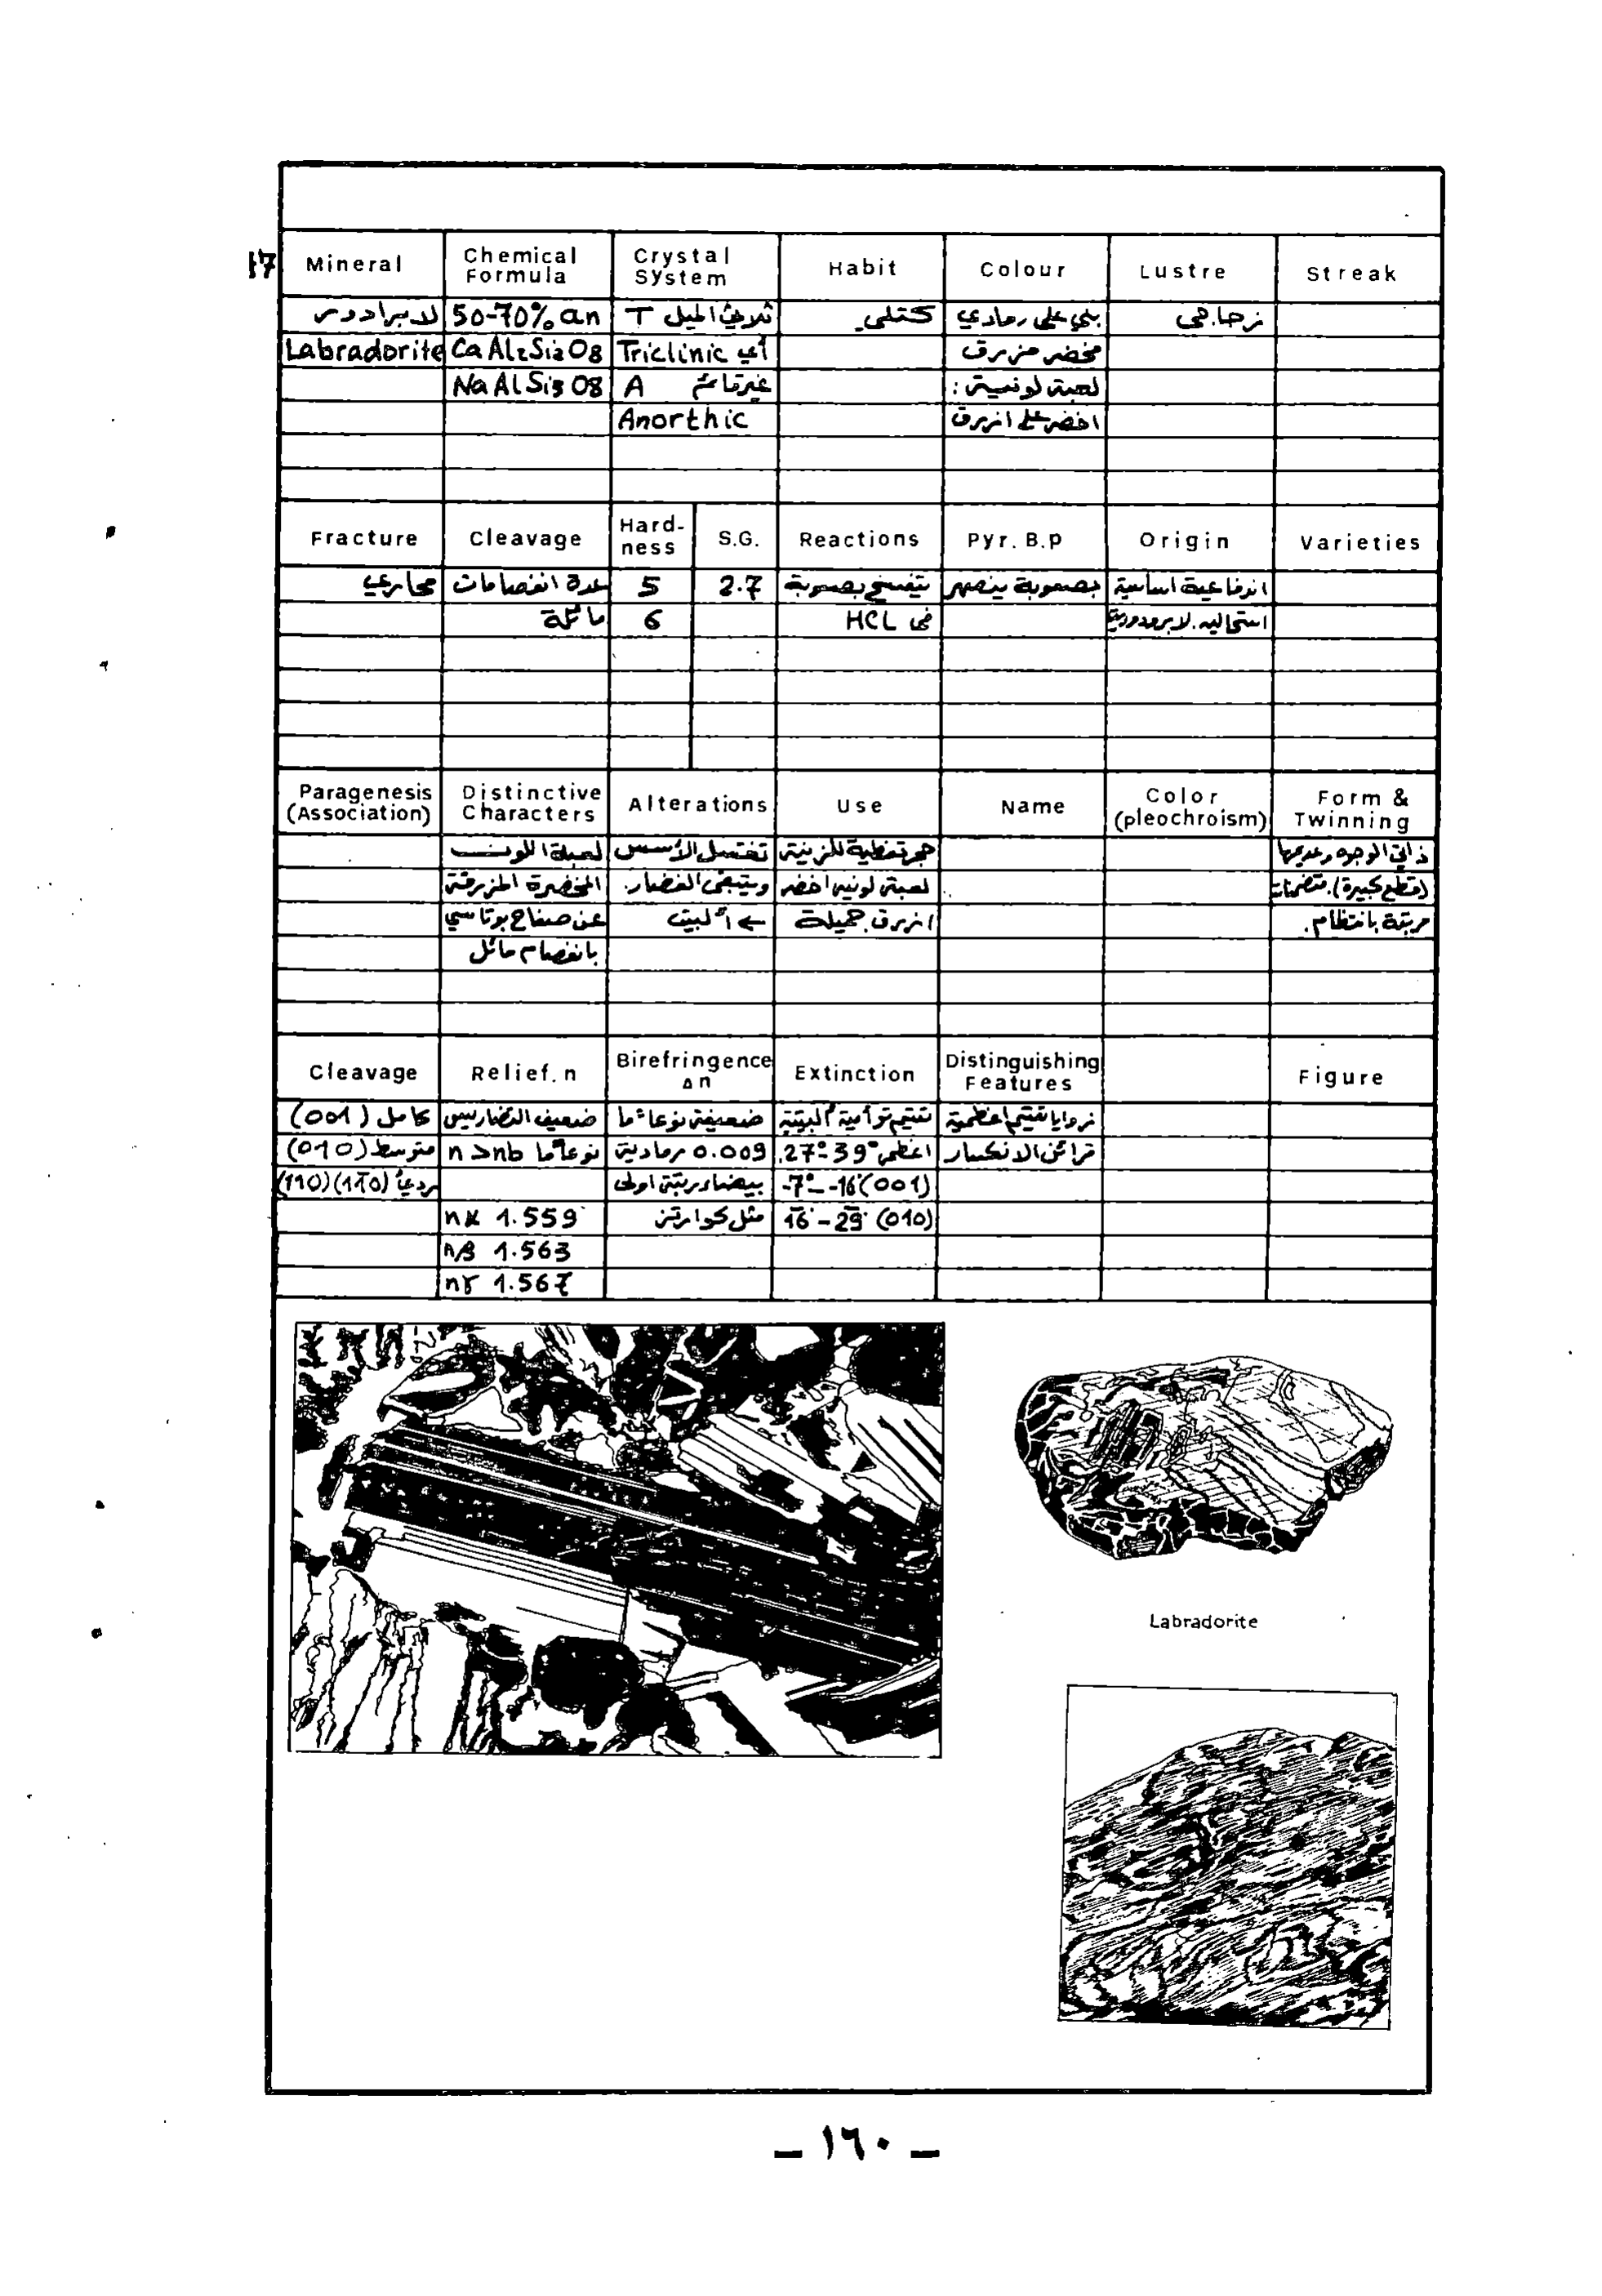 17
Mineral	Chemical Formula	Crystal System	Habit	Colour	Lustre	Streak
لابرادور	50-70% an	ثلاثي الميل T	كتلي	بني على رمادي	زجاجي
Labradorite	CaAl2Si2O8	Triclinic أي		مخضر مزرق
NaAlSi3O8	A غير قائم		لعبة لونية:
Anorthic		اخضر على ازرق
Fracture	Cleavage	Hard-ness	S.G.	Reactions	Pyr. B.p	Origin	Varieties
محاري	عدة انفصامات	5	2.7	يتفسخ بصعوبة	بصعوبة ينصهر	اندفاعية اساسية
مائلة	6		في HCL		استحالية
Paragenesis (Association)	Distinctive Characters	Alterations	Use	Name	Color (pleochroism)	Form & Twinning
لعبة اللون	تغتسل الأسس	حجر تغطية للزينة			ذاتي الوجوه وعديمها
المخضرة المزرقة	ويتبقى الغضار.	لعبة لونية اخضر			(قطع كبيرة). متضمنات
عن صفاح بوتاسي	← ألبيت	ازرق جميلة			مرتبة بانتظام.
بانفصام مائل
Cleavage	Relief. n	Birefringence Δn	Extinction	Distinguishing Features		Figure
كامل (001)	ضعيف التضاريس	ضعيفة نوعاً ما		زوايا تعتيم اعظمية
متوسط (010)	نوعاً ما n>nb	0.009 رمادية	اعظمي 27°-39°	قرائن الانكسار
(110)(1Ī0)		بيضاء رتبة اولى	-7°--16 (001)
nα 1.559	مثل كوارتز	16-29 (010)
nβ 1.563
nγ 1.567
Labradorite
- ١٦٠ -